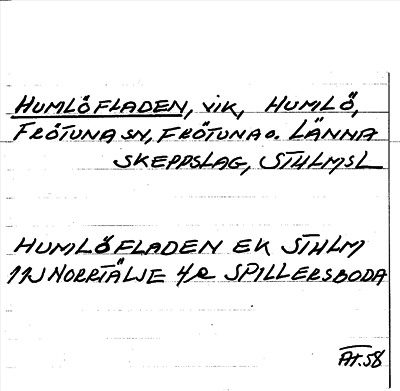 HUMLÖFLADEN, vik, HUMLÖ,
FRÖTUNA SN, FRÖTUNA o. LÄNNA
SKEPPSLAG, STHLMSL
HUMLÖFLADEN EK STHLM
11J NORRTÄLJE 4e SPILLERSBODA
AT.58